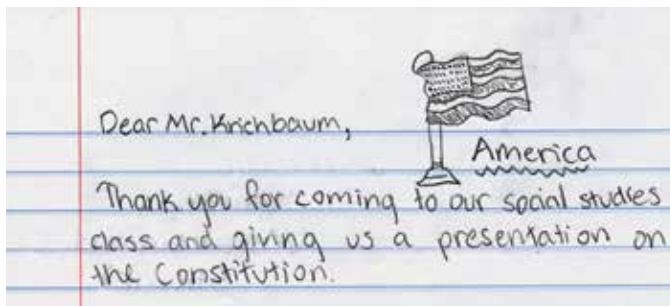 Dear Mr. Krichbaum,
America
Thank you for coming to our social studies
class and giving us a presentation on
the Constitution.